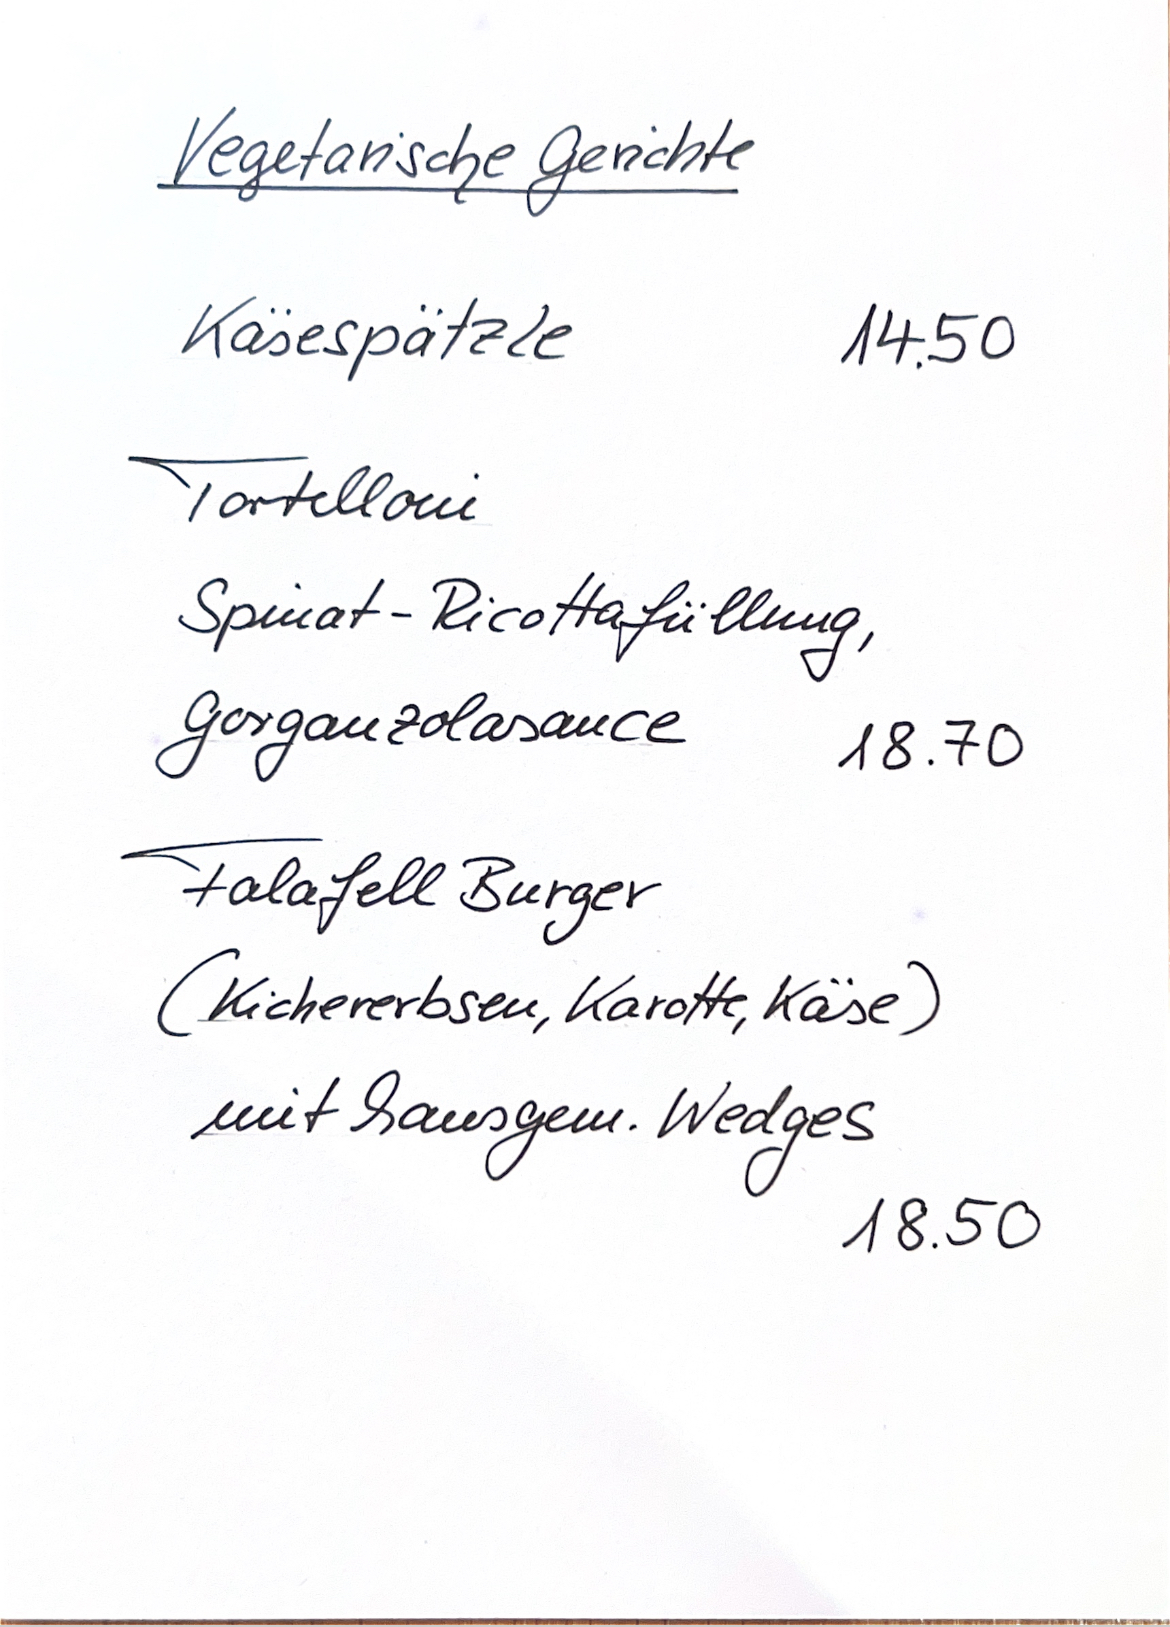 Vegetarische Gerichte
Käsespätzle 14.50
Tortelloni
Spinat-Ricottafüllung,
Gorganzolasauce 18.70
Falafell Burger
(Kichererbsen, Karotte, Käse)
mit hausgem. Wedges
18.50